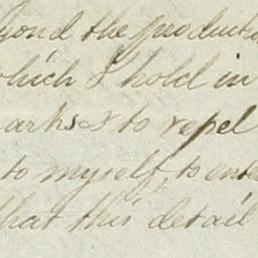 yond the producti
which I hold in
arks & to repel
to myself, to ente
that this detail